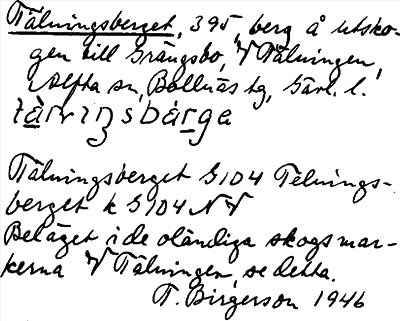 Tälningsberget, 395, berg å utsko-
gen till Grängsbo, V Tälningen,
Alfta sn, Bollnäs tg, Gävl. l.

Tälningsberget G104 Telnings-
berget k G104 NV
Beläget i de oländiga skogsmar-
kerna V Tälningen, se detta.
T. Birgerson 1946